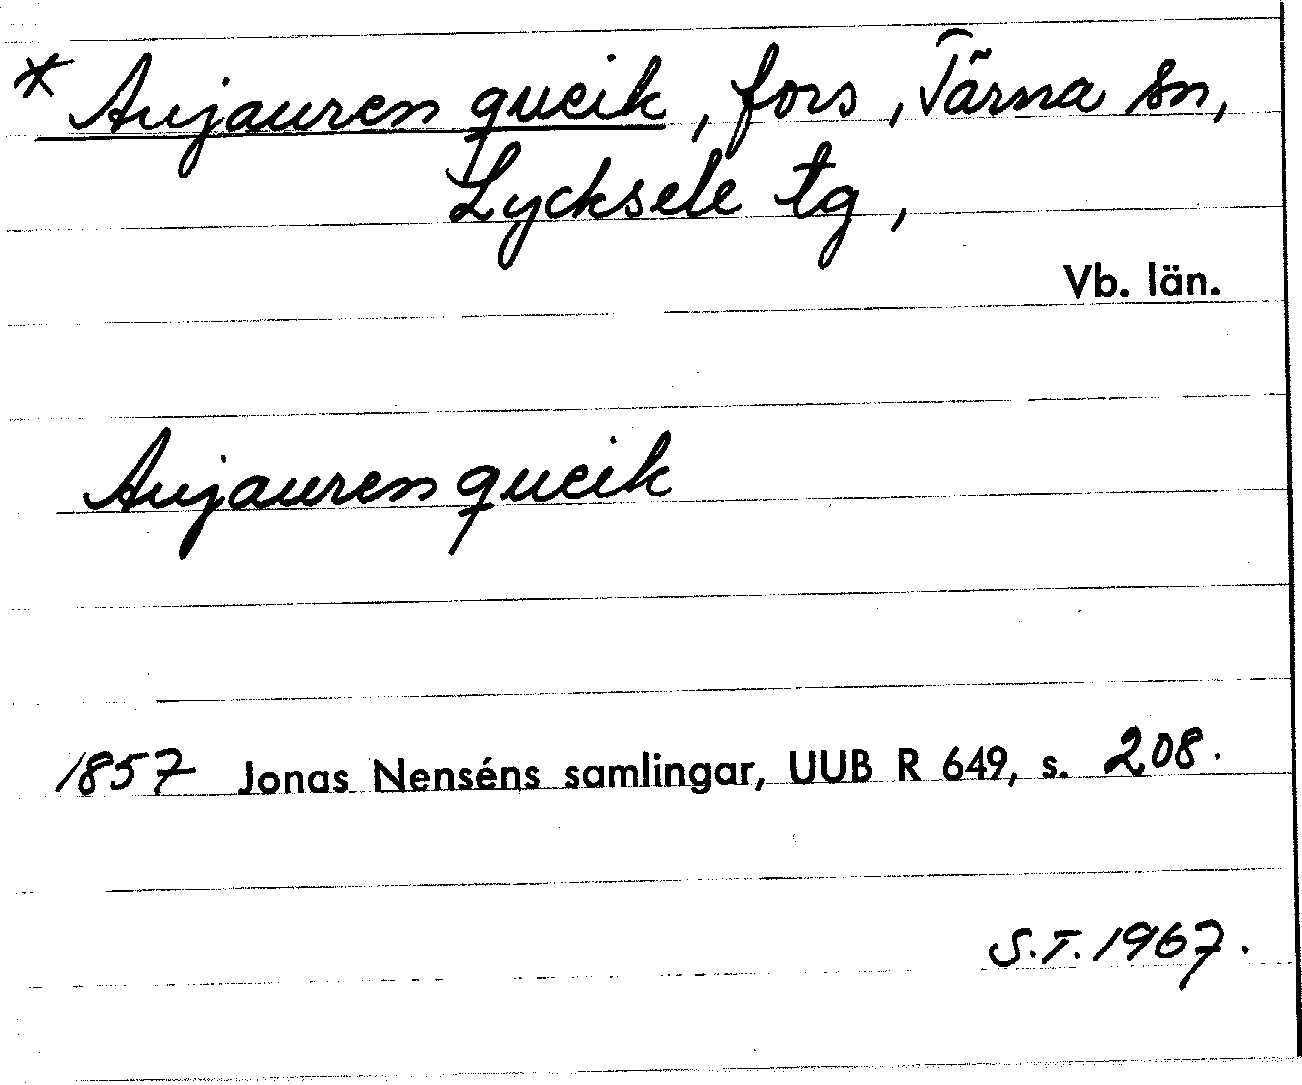 * Aujauren queik, fors, Tärna sn,
Lycksele tg,
Vb. län.
Aujauren queik
1857 Jonas Nenséns samlingar, UUB R 649, s. 208.
S.T. 1967.